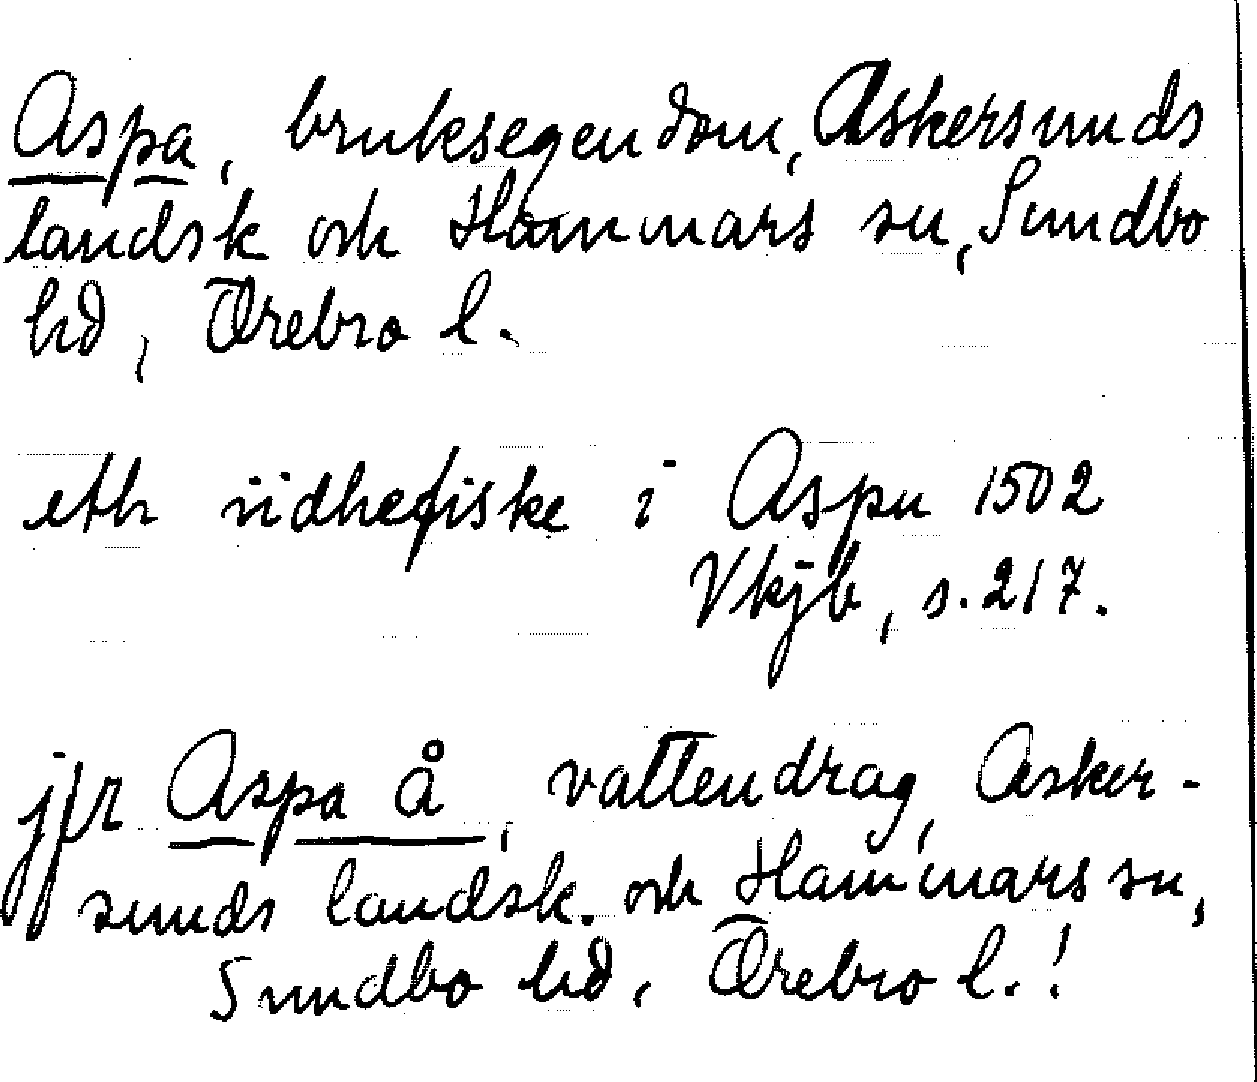 Aspa, bruksegendom, Askersunds
landsk och Hammars sn, Sundbo
hd, Örebro l.
eth iidhefiske i Aspu 1502
Vkjb, s. 217.
jfr Aspa å, vattendrag, Asker-
sunds landsk. och Hammars sn,
Sundbo hd, Örebro l.!